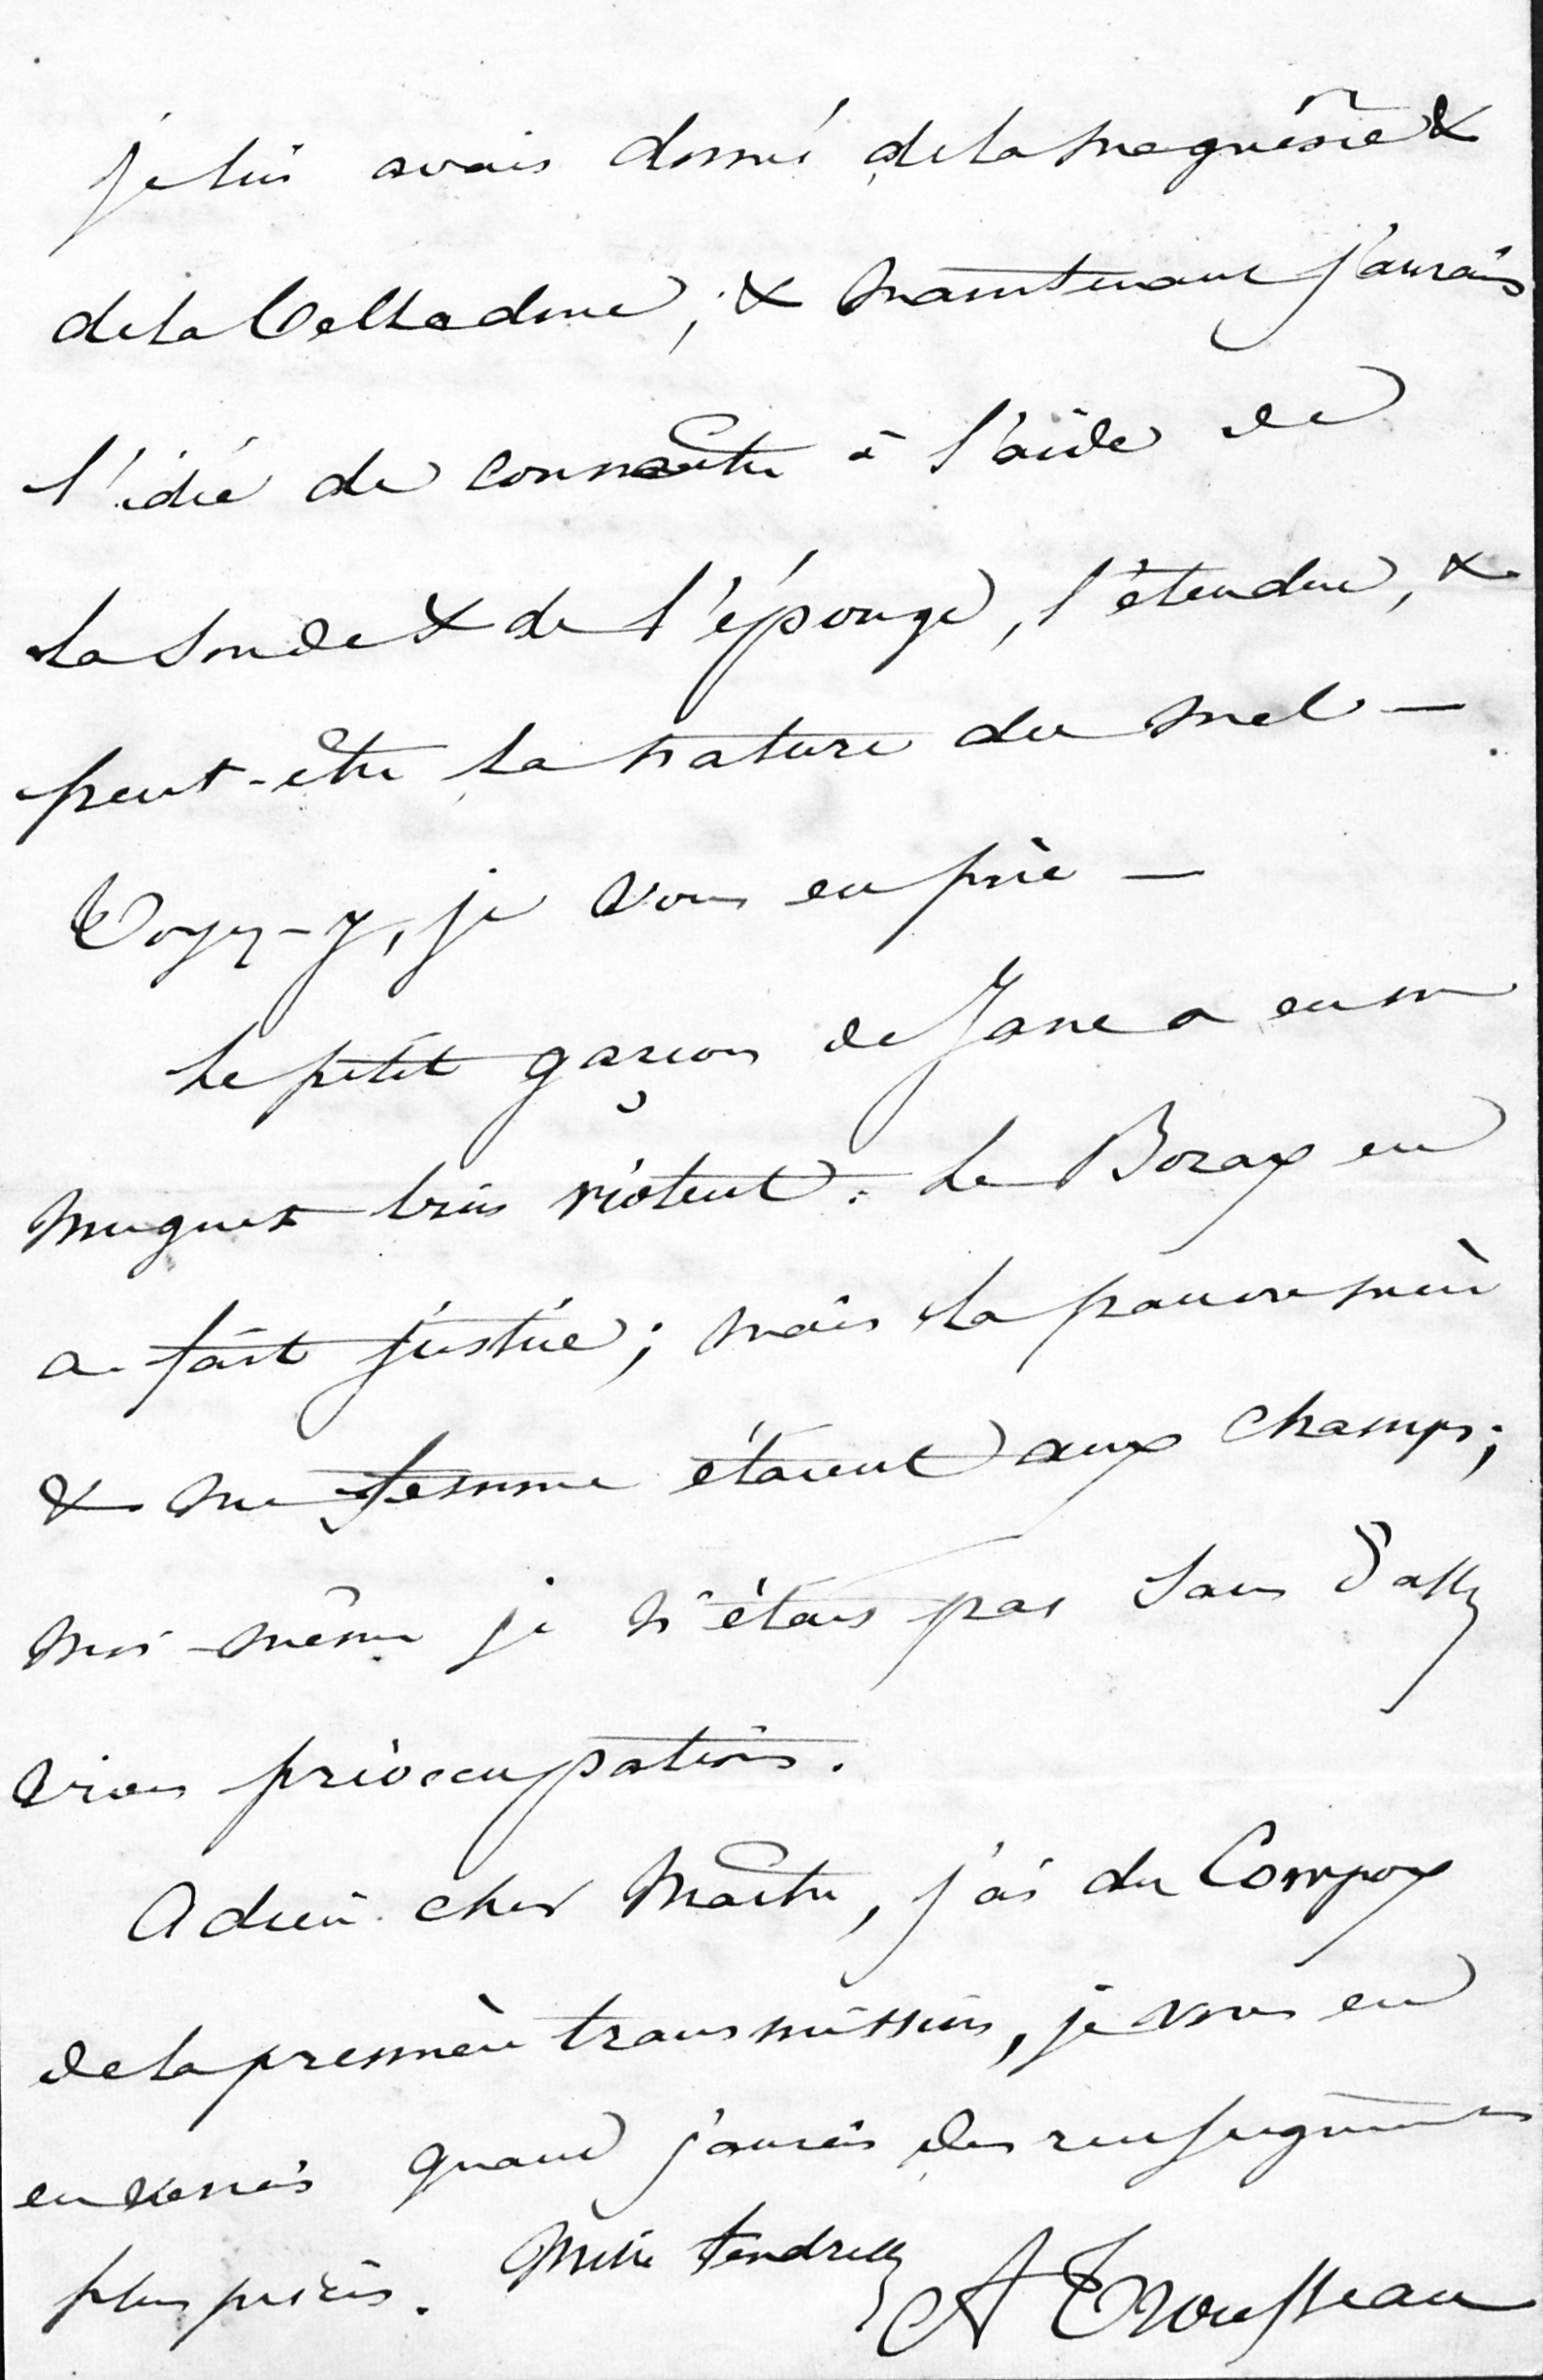 je lui avais donné de la magnésie &
de la belladone, & maintenant j'aurais
l'idée de connaître à l'aide de
la sonde & de l'éponge, l'étendue, &
peut-être la nature du mal —
Voyez-y, je vous en prie —
Le petit garçon de Jane a eu un
muguet très violent. Le Borax en
a fait justice; mais la pauvre mère
& ma femme étaient aux champs;
moi-même je n'étais pas sans d'assez
vives préoccupations.
Adieu cher Maître, j'ai du Cowpox
de la première transmission, je vous en
enverrai quand j'aurai des renseignements
plus précis. Mille tendresses
A Trousseau